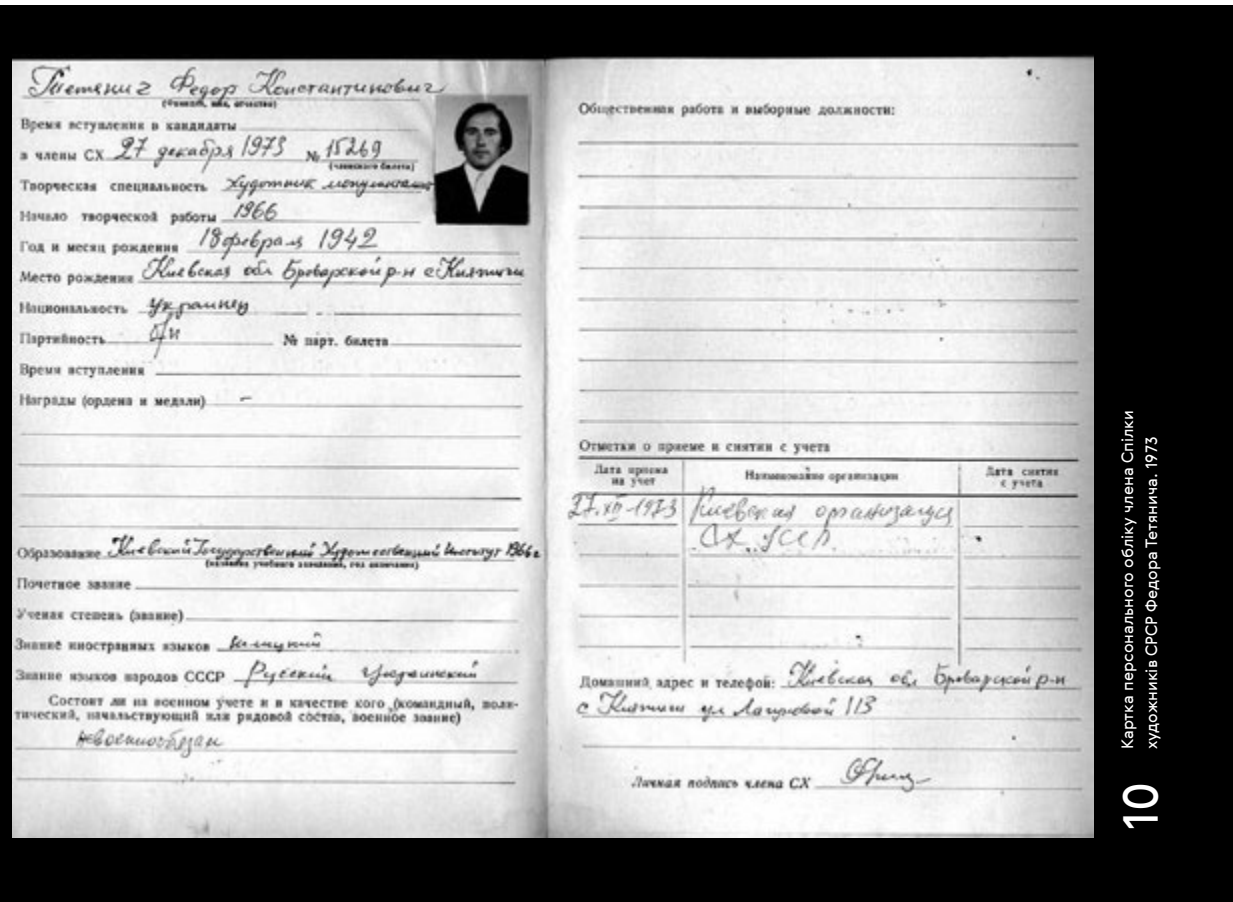 Тетянич Федор Константинович
(Фамилия, имя, отчество)
Время вступления в кандидаты
в члены СХ 27 декабря 1973 № 15269
(членского билета)
Творческая специальность художник монументалист
Начало творческой работы 1966
Год и месяц рождения 18 февраля 1942
Место рождения Киевская обл Броварской р-н с Княжичи
Национальность украинец
Партийность б/п № парт. билета
Время вступления
Награды (ордена и медали) —
Образование Киевский Государственный Художественный Институт 1966 г
(название учебного заведения, год окончания)
Почетное звание
Ученая степень (звание)
Знание иностранных языков немецкий
Знание языков народов СССР Русский Украинский
Состоит ли на военном учете и в качестве кого (командный, поли-
тический, начальствующий или рядовой состав, военное звание)
невоеннообязан
Общественная работа и выборные должности:
Отметки о приеме и снятии с учета
Дата приема
на учет
Наименование организации
Дата снятия
с учета
27.XII-1973 Киевская организация
СХ УССР
Домашний адрес и телефон: Киевская обл Броварской р-н
с Княжичи ул 113
Личная подпись члена СХ
Картка персонального обліку члена Спілки
художників СРСР Федора Тетянича. 1973
10